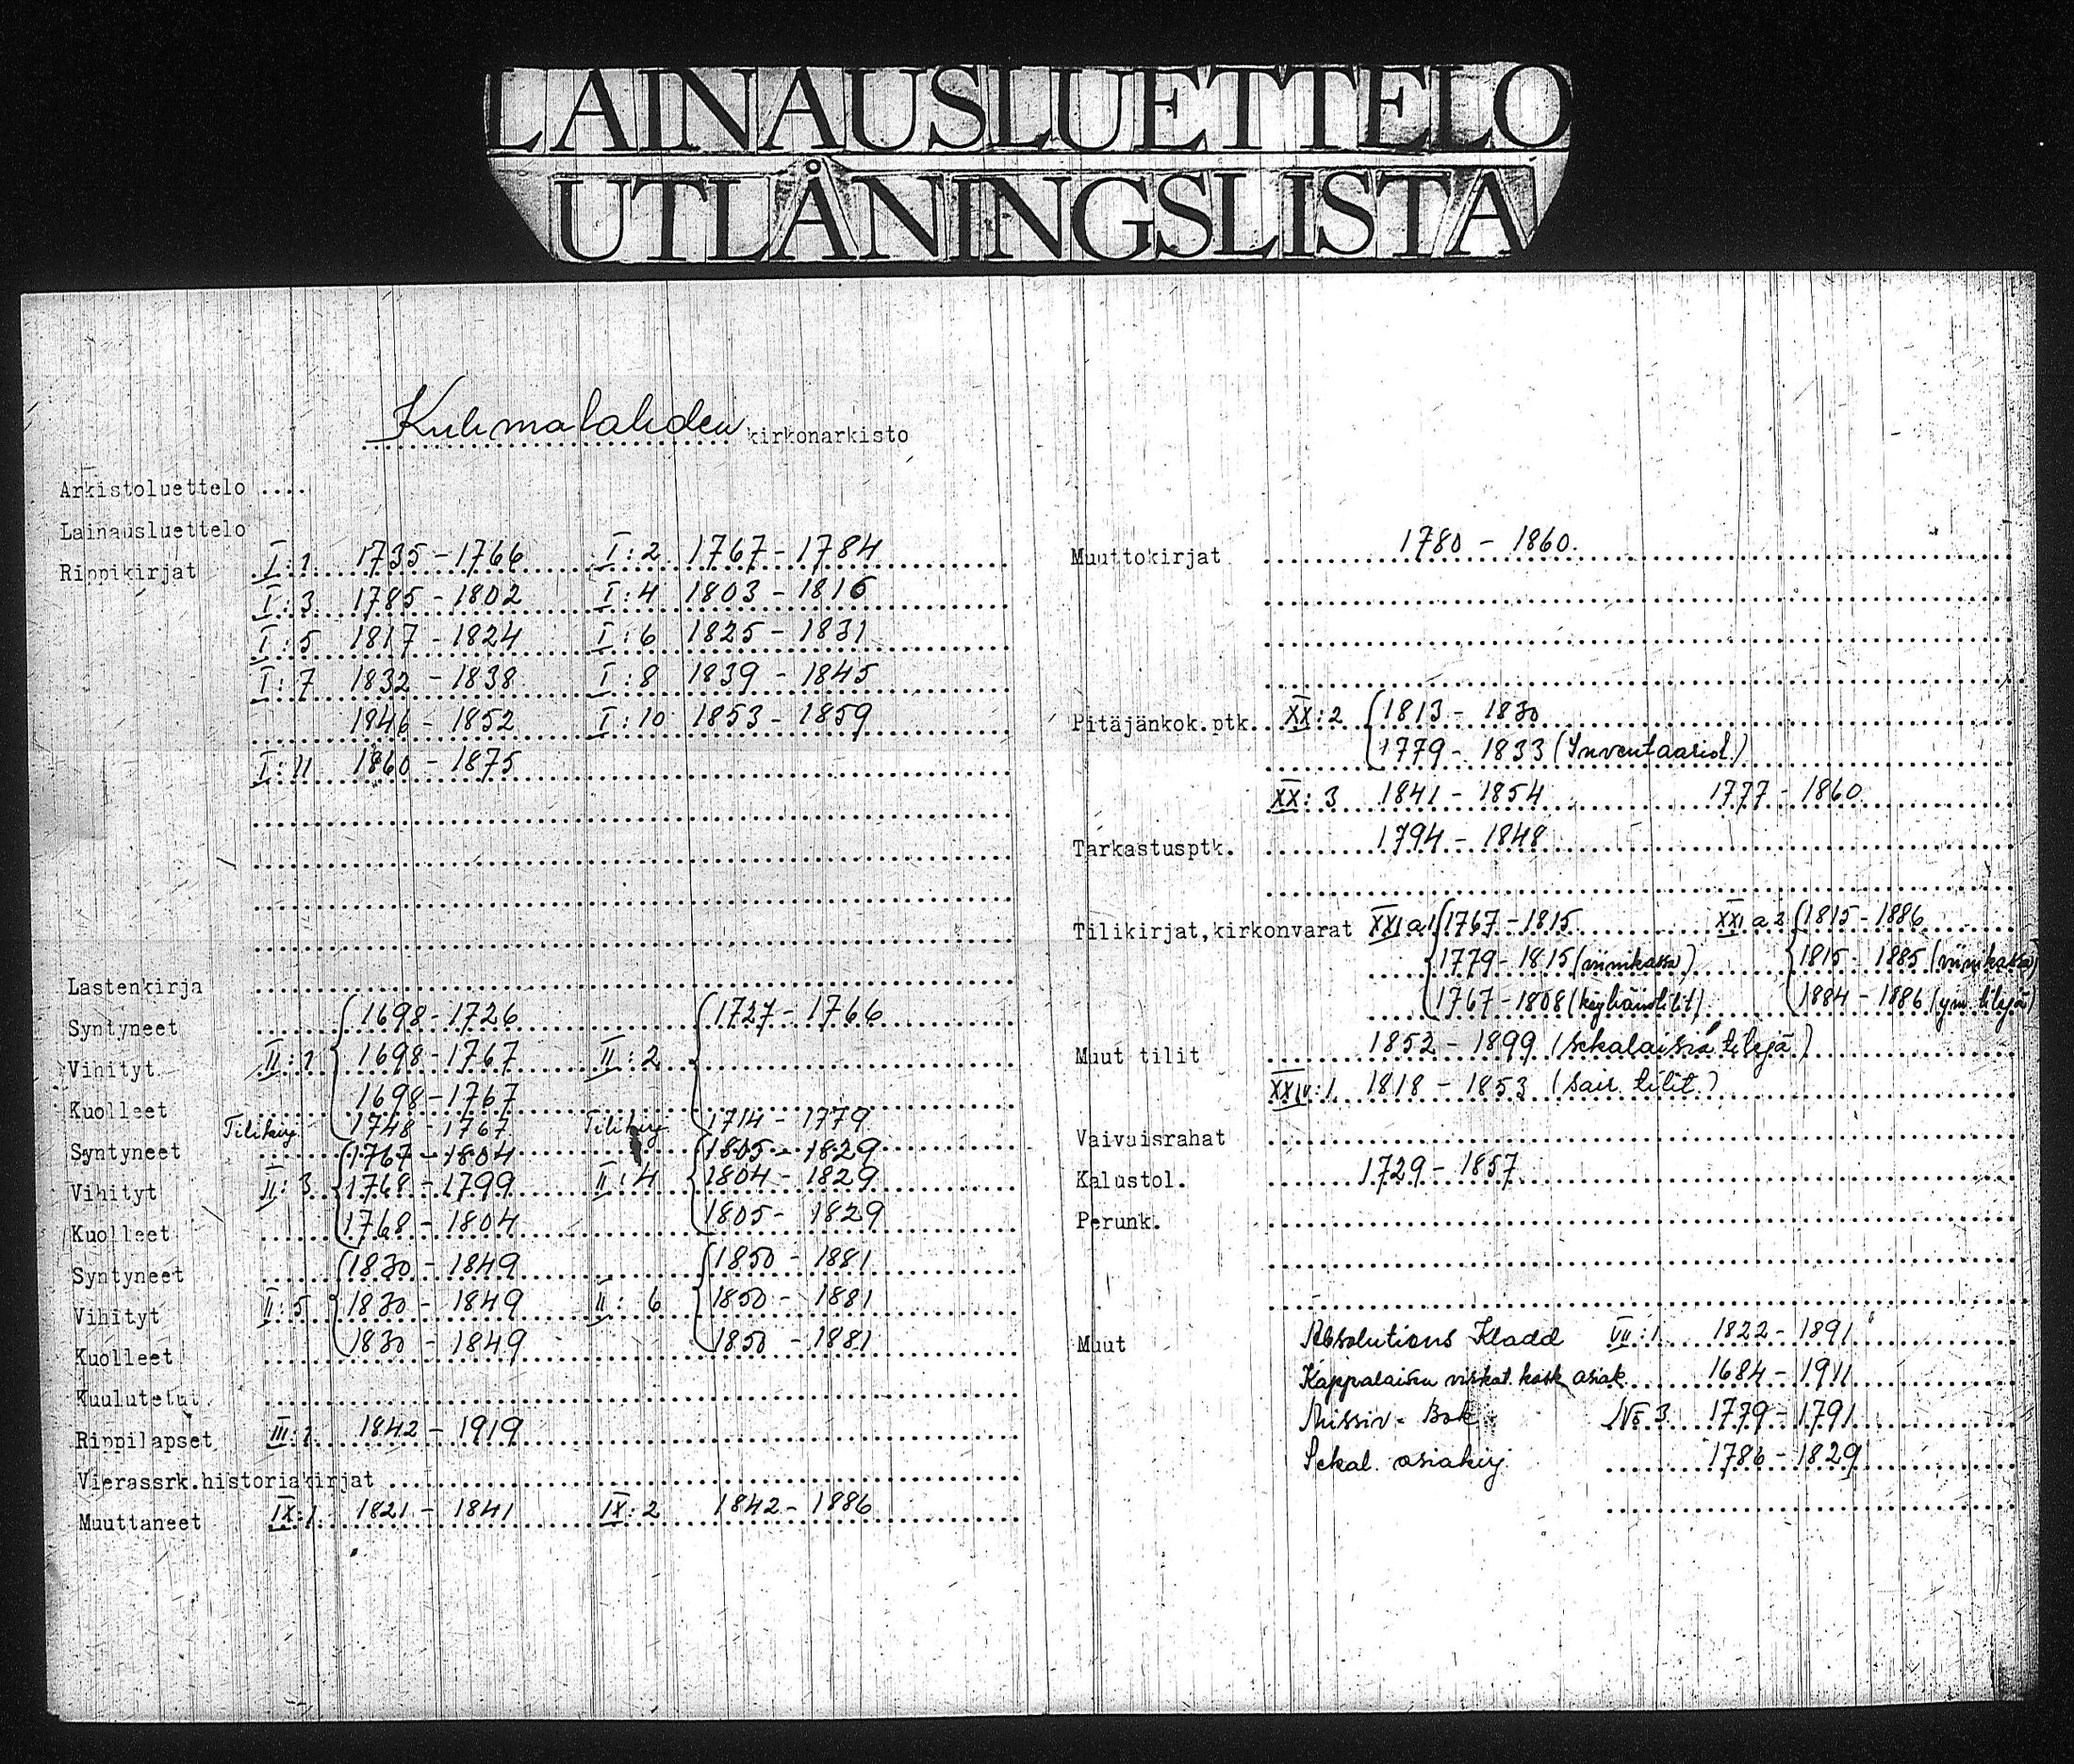 LAINAUSLUETTELO
UTLÅNINGSLISTA
Kuhmalahden kirkonarkisto
Arkistoluettelo ....
Lainausluettelo
Rippikirjat I:1 1735-1766 I:2 1767-1784
I:3 1785-1802 I:4 1803-1816
I:5 1817-1824 I:6 1825-1831
I:7 1832-1838 I:8 1839-1845
1846-1852 I:10 1853-1859
I:11 1860-1875
Lastenkirja
Syntyneet 1698-1726 1727-1766
Vihityt II:1 1698-1767 II:2
Kuolleet 1698-1767
Tilikirj. 1748-1767 Tilikirj. 1714-1779
Syntyneet 1767-1804 1805-1829
Vihityt II:3 1768-1799 II:4 1804-1829
Kuolleet 1768-1804 1805-1829
Syntyneet 1830-1849 1850-1881
Vihityt II:5 1830-1849 II:6 1850-1881
Kuolleet 1830-1849 1850-1881
Kuulutetut
Rippilapset III:1 1842-1919
Vierassrk.historiakirjat
Muuttaneet IX:1 1821-1841 IX:2 1842-1886
Muuttokirjat 1780-1860.
Pitäjänkok.ptk. XX:2 1813-1830
1779-1833 (Inventaariol.)
XX:3 1841-1854 1777-1860
Tarkastusptk. 1794-1848
Tilikirjat,kirkonvarat XXI a 1 1767-1815 XXI a 2 1815-1886
1779-1815 (viinikassa) 1815-1885 (viinikassa)
1767-1808 (köyhäintilit) 1884-1886 (ym. tilejä)
Muut tilit 1852-1899 (sekalaisia tilejä)
XXIV:1 1818-1853 (sair. tilit.)
Vaivaisrahat
Kalustol. 1729-1857
Perunk.
Muut Absolutions Kladd VII:1 1822-1891
Kappalaisen virkat. kosk. asiak. 1684-1911
Missiv-Bok No 3 1779-1791
Sekal. asiakirj. 1786-1829